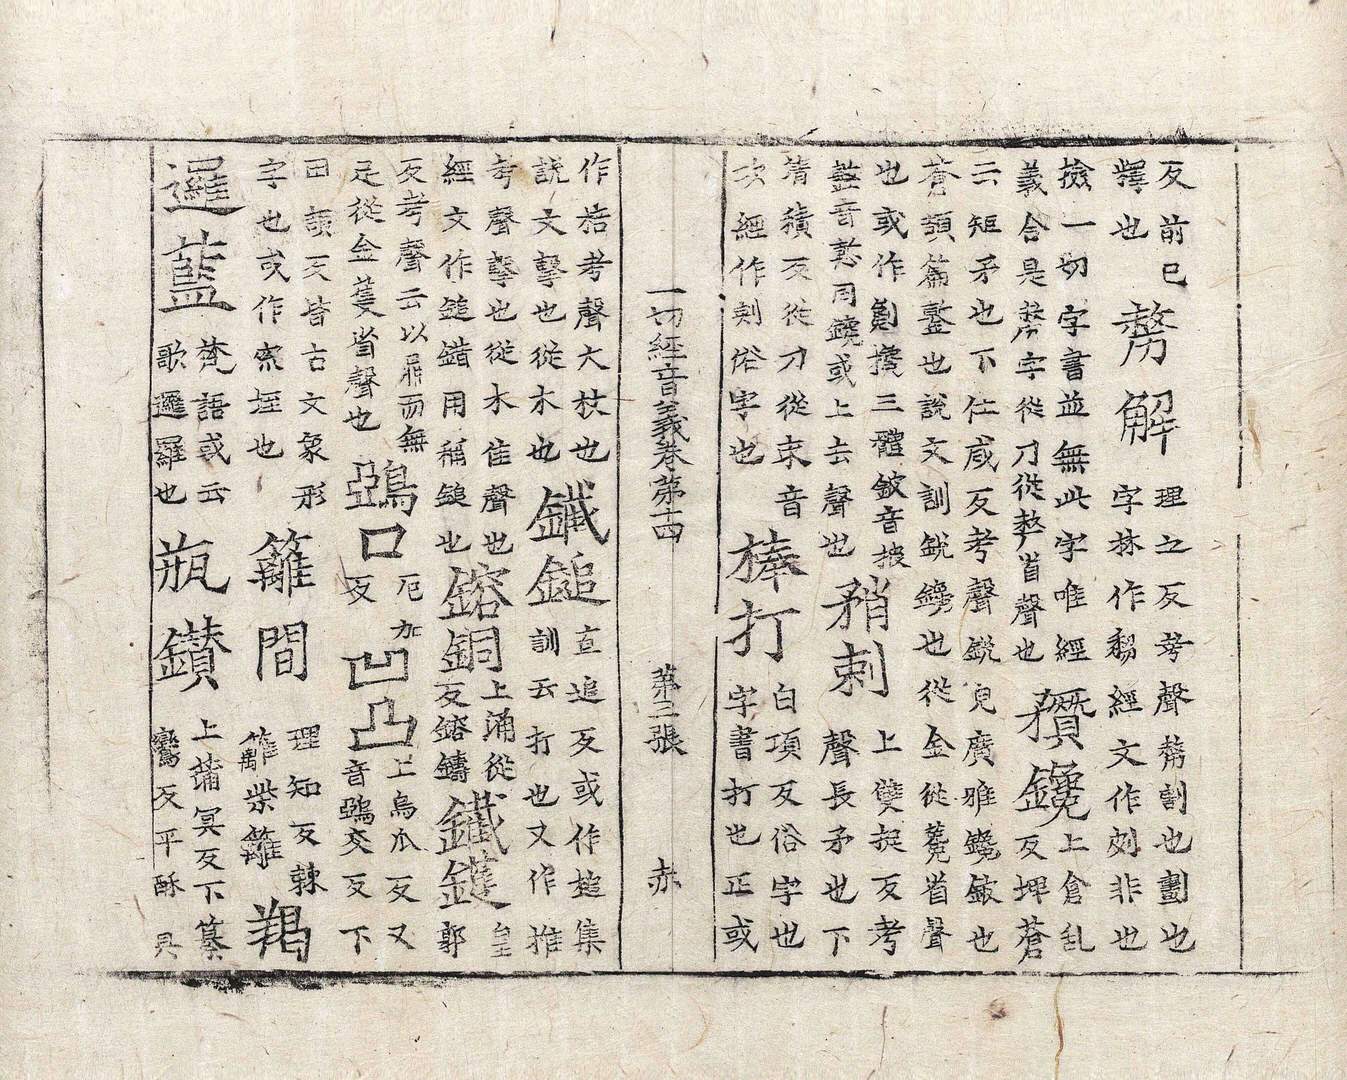 反前已釋也剺解理之反考聲剺割也劃也字林作剓經文作刻非也
撿一切字書並無此字唯經義合是剺字從刀從𠩺省聲也穳鑹上倉乱反埤蒼
云短矛也下仕咸反考聲銳皃廣雅鑱鈹也蒼頡篇鏨也說文訓銳鑱也從金從毚省聲
也或作劖攙三體鈹音披鏨音慙同鑱或上去聲也矟刺上雙捉反考聲長矛也下
清積反從刀從朿音次經作刾俗字也棒打白項反俗字也字書打也正或
一切經音義卷第十四 第三張 赤
作棓考聲大杖也說文擊也從木也鐵鎚直追反或作槌集訓云打也又作推
考聲擊也從木隹聲也經文作鎚錯用稱鎚也鎔銅上涌從反鎔鑄鐵鑊皇郭
反考聲云以鼎而無足從金蒦省聲也鵶口厄加反凹凸上烏瓜反又音鵶交反下
田頡反皆古文象形字也或作窊垤也籬間理知反棘籬柴籬羯
邏藍梵語或云歌邏羅也瓶鑽上蒲冥反下纂鸞反平酥具